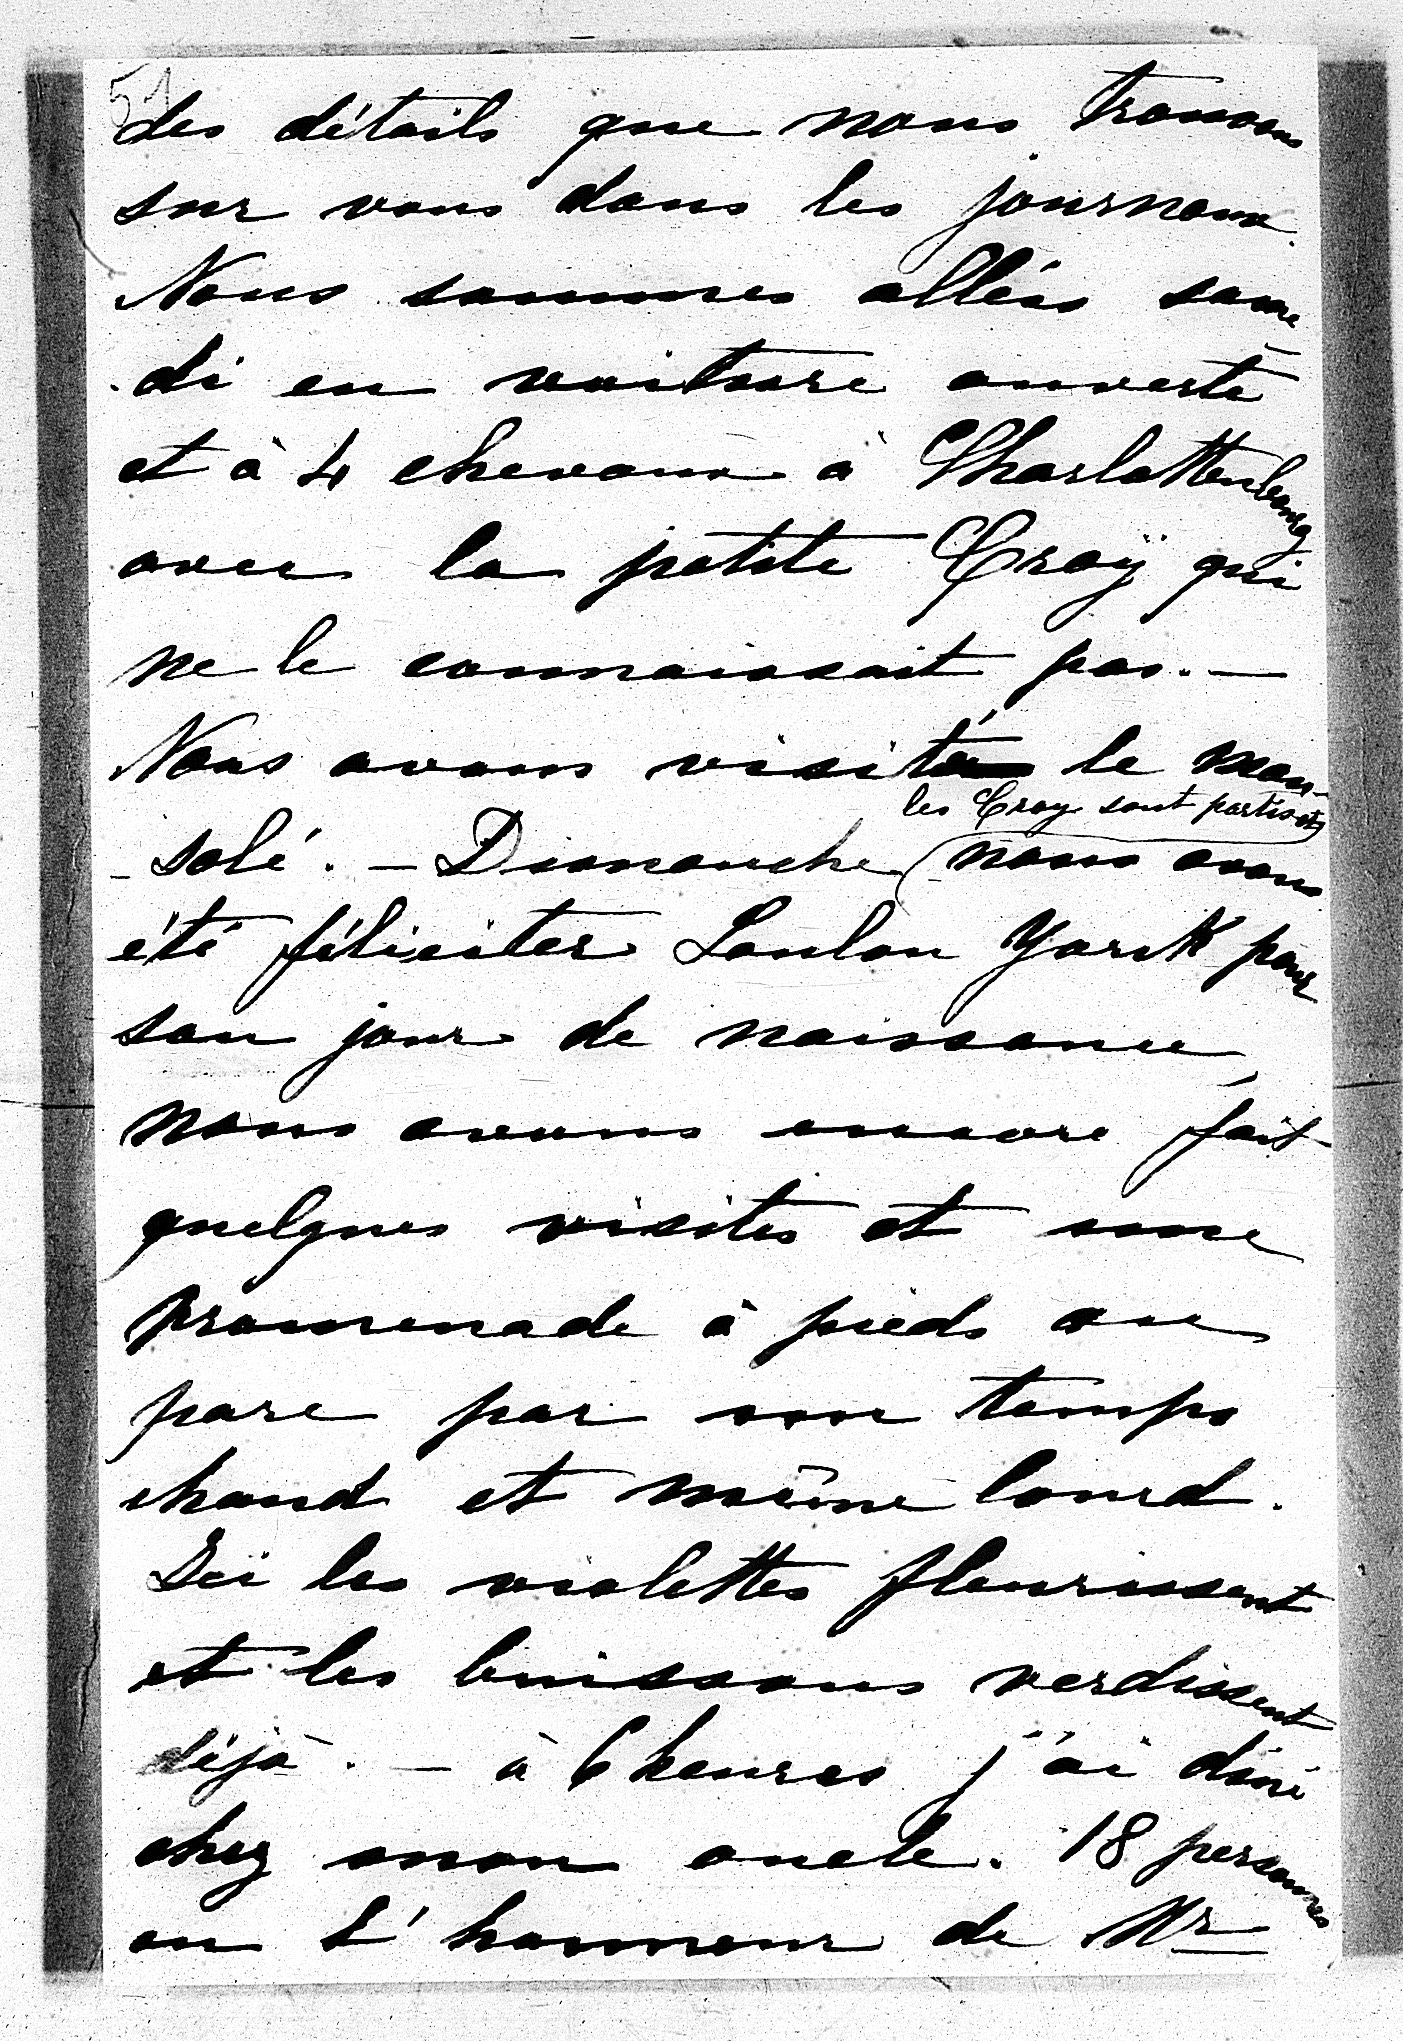 51
des détails que nous trouvons
sur vous dans les journaux.
Nous sommes allés same
di en voiture ouverte
et à 4 chevaux à Charlottenbourg
avec la petite Croÿ qui
ne le connaissait pas. —
Nous avons visité le mau-
les Croy sont partis et
- solé. — Dimanche nous avons
été féliciter Loulou Yorck pour
son jour de naissance,
nous avons encore fait
quelques visites et une
promenade à pieds au
parc par un temps
chaud et même lourd.
Ici les violettes fleurissent
et les buissons verdissent
déjà. — à 6 heures j'ai dîné
chez mon oncle. 18 personnes
en l'honneur de Mr